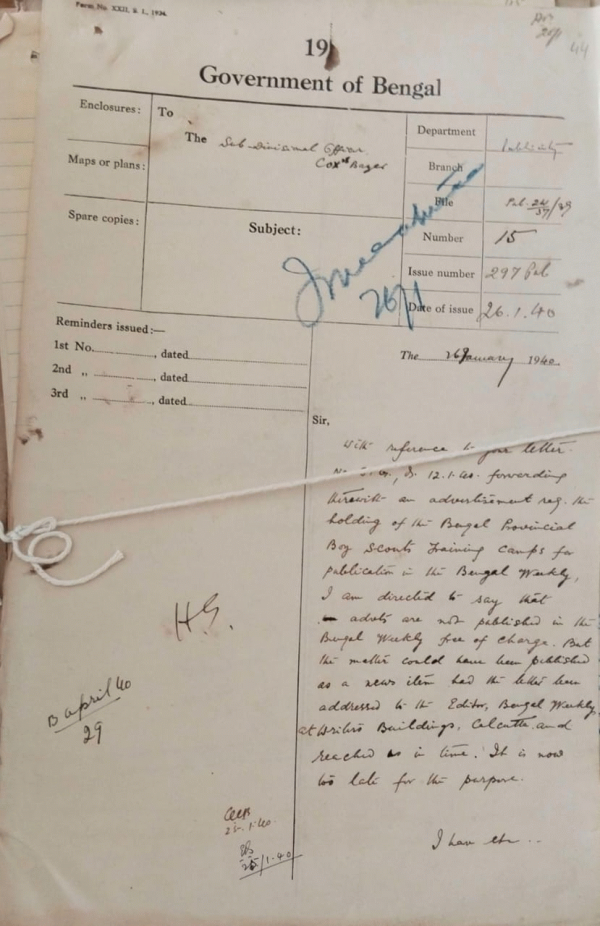 Form No. XXII, S. L., 1934.
44
19
Government of Bengal
Enclosures:
To
The Sub-Divisional Officer
Cox's Bazar
Maps or plans:
Spare copies:
Subject:
Department Publicity
Branch
File
Number 15
Issue number 297 Pub
Date of issue 26.1.40
26/1
Reminders issued:—
1st No. , dated
2nd „ , dated
3rd „ , dated
The 26 January 1940.
Sir,
With reference to your letter
12.1.40. forwarding
therewith an advertisement reg. the
holding of the Bengal Provincial
Boy Scouts Training Camps for
publication in the Bengal Weekly,
I am directed to say that
advts are not published in the
Bengal Weekly free of charge. But
the matter could have been published
as a news item had the letter been
addressed to the Editor, Bengal Weekly,
at Writers Buildings, Calcutta and
reached us in time. It is now
too late for the purpose.
I have etc..
H.S.
B April 40
29
25/1.40